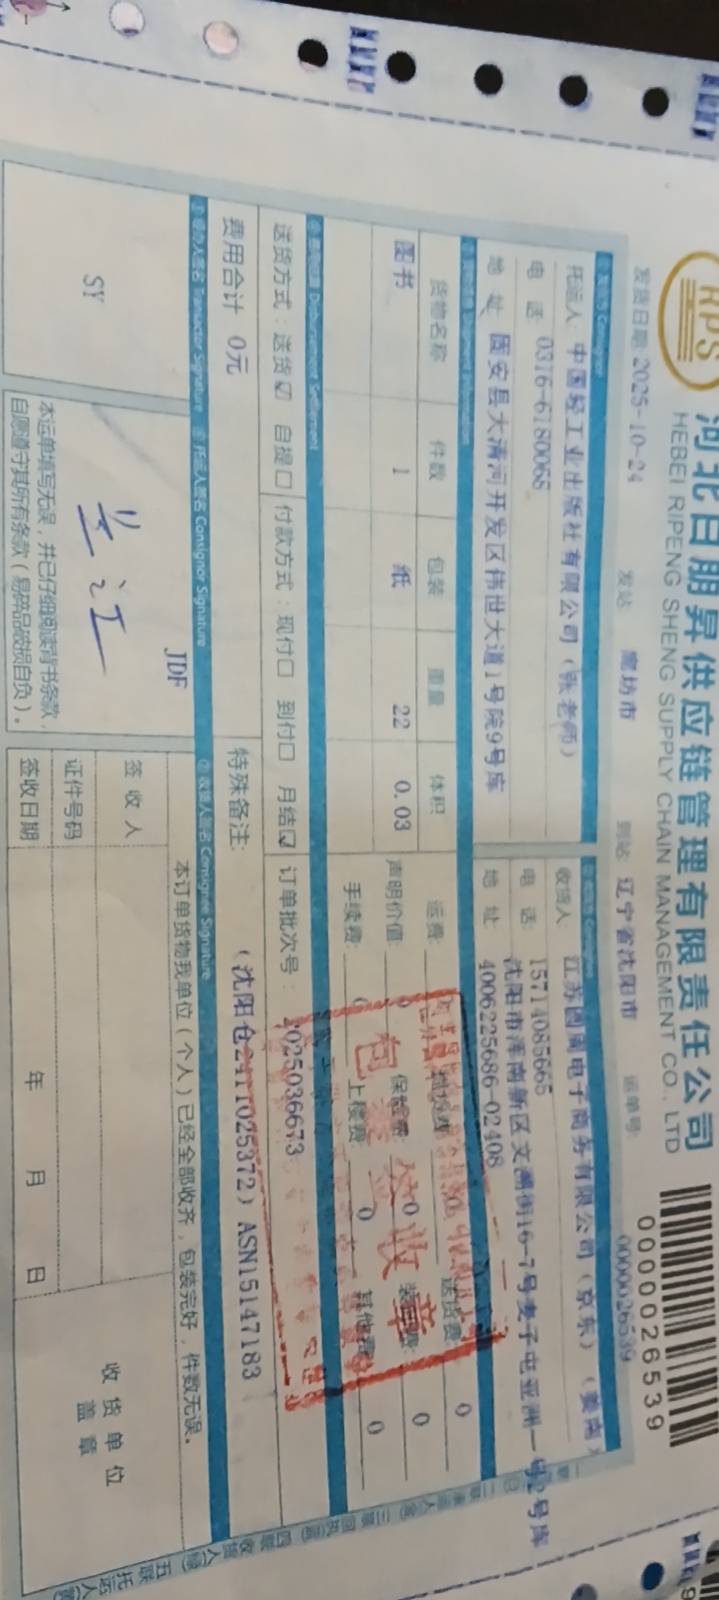 RPS
河北日朋昇供应链管理有限责任公司
HEBEI RIPENG SHENG SUPPLY CHAIN MANAGEMENT CO., LTD
0000026539
发货日期: 2025-10-24 发站: 廊坊市 到站: 辽宁省沈阳市 运单号: 0000026539
托运人: 中国轻工业出版社有限公司（张老师）
电 话: 0316-6180066
地 址: 固安县大清河开发区伟世大道1号院9号库
收货人: 江苏圆周电子商务有限公司（京东）
电 话: 15714085665
地 址: 沈阳市浑南新区文溯街16-7号麦子屯亚洲一号2号库
4006225686-02408
货物名称 件数 包装 重量 体积
图书 1 纸 22 0.03
运费: 送货费: 0
声明价值: 0 保险费: 0 装卸费: 0
手续费: 0 上楼费: 0 其他费: 0
包装签收章
Disbursement Settlement
送货方式: 送货☑ 自提□ 付款方式: 现付□ 到付□ 月结☑ 订单批次号: 2025036673
费用合计 0元 特殊备注: (沈阳仓2411025372) ASN15147183
Transactor Signature
托运人签名 Consignor Signature
收货人签名 Consignee Signature
SY
JDF
本运单填写无误，并已仔细阅读背书条款，
自愿遵守其所有条款（易碎品破损自负）。
本订单货物我单位（个人）已经全部收齐，包装完好，件数无误。
签 收 人
证件号码
签收日期 年 月 日
收 货 单 位
盖 章